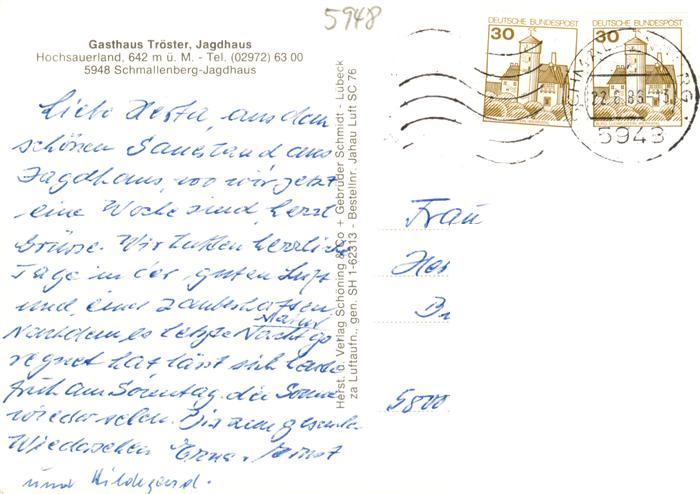 5948
Gasthaus Tröster, Jagdhaus
Hochsauerland, 642 m ü. M. - Tel. (02972) 63 00
5948 Schmallenberg-Jagdhaus
DEUTSCHE BUNDESPOST
30
DEUTSCHE BUNDESPOST
30
22.6.86
5948
Liebe Herta, aus dem
schönen Sauerland aus
Jagdhaus, wo wir jetzt
eine Woche sind, herzl
Grüsse. Wir hatten herrliche
Tage in der guten Luft
und einer zauberhaften
Natur
Nachdem es letzte Nacht ge
regnet hat lässt sich heute
früh am Sonntag die Sonne
wieder sehen. Bis zum gesunden
Wiedersehen Erna, Ernst
und Hildegard.
Herst. u. Verlag Schöning & Co + Gebrüder Schmidt - Lübeck
za Luftaufn., gen. SH 1-62313 - Bestellnr. Jahau Luft SC 76
Frau
Her
5800